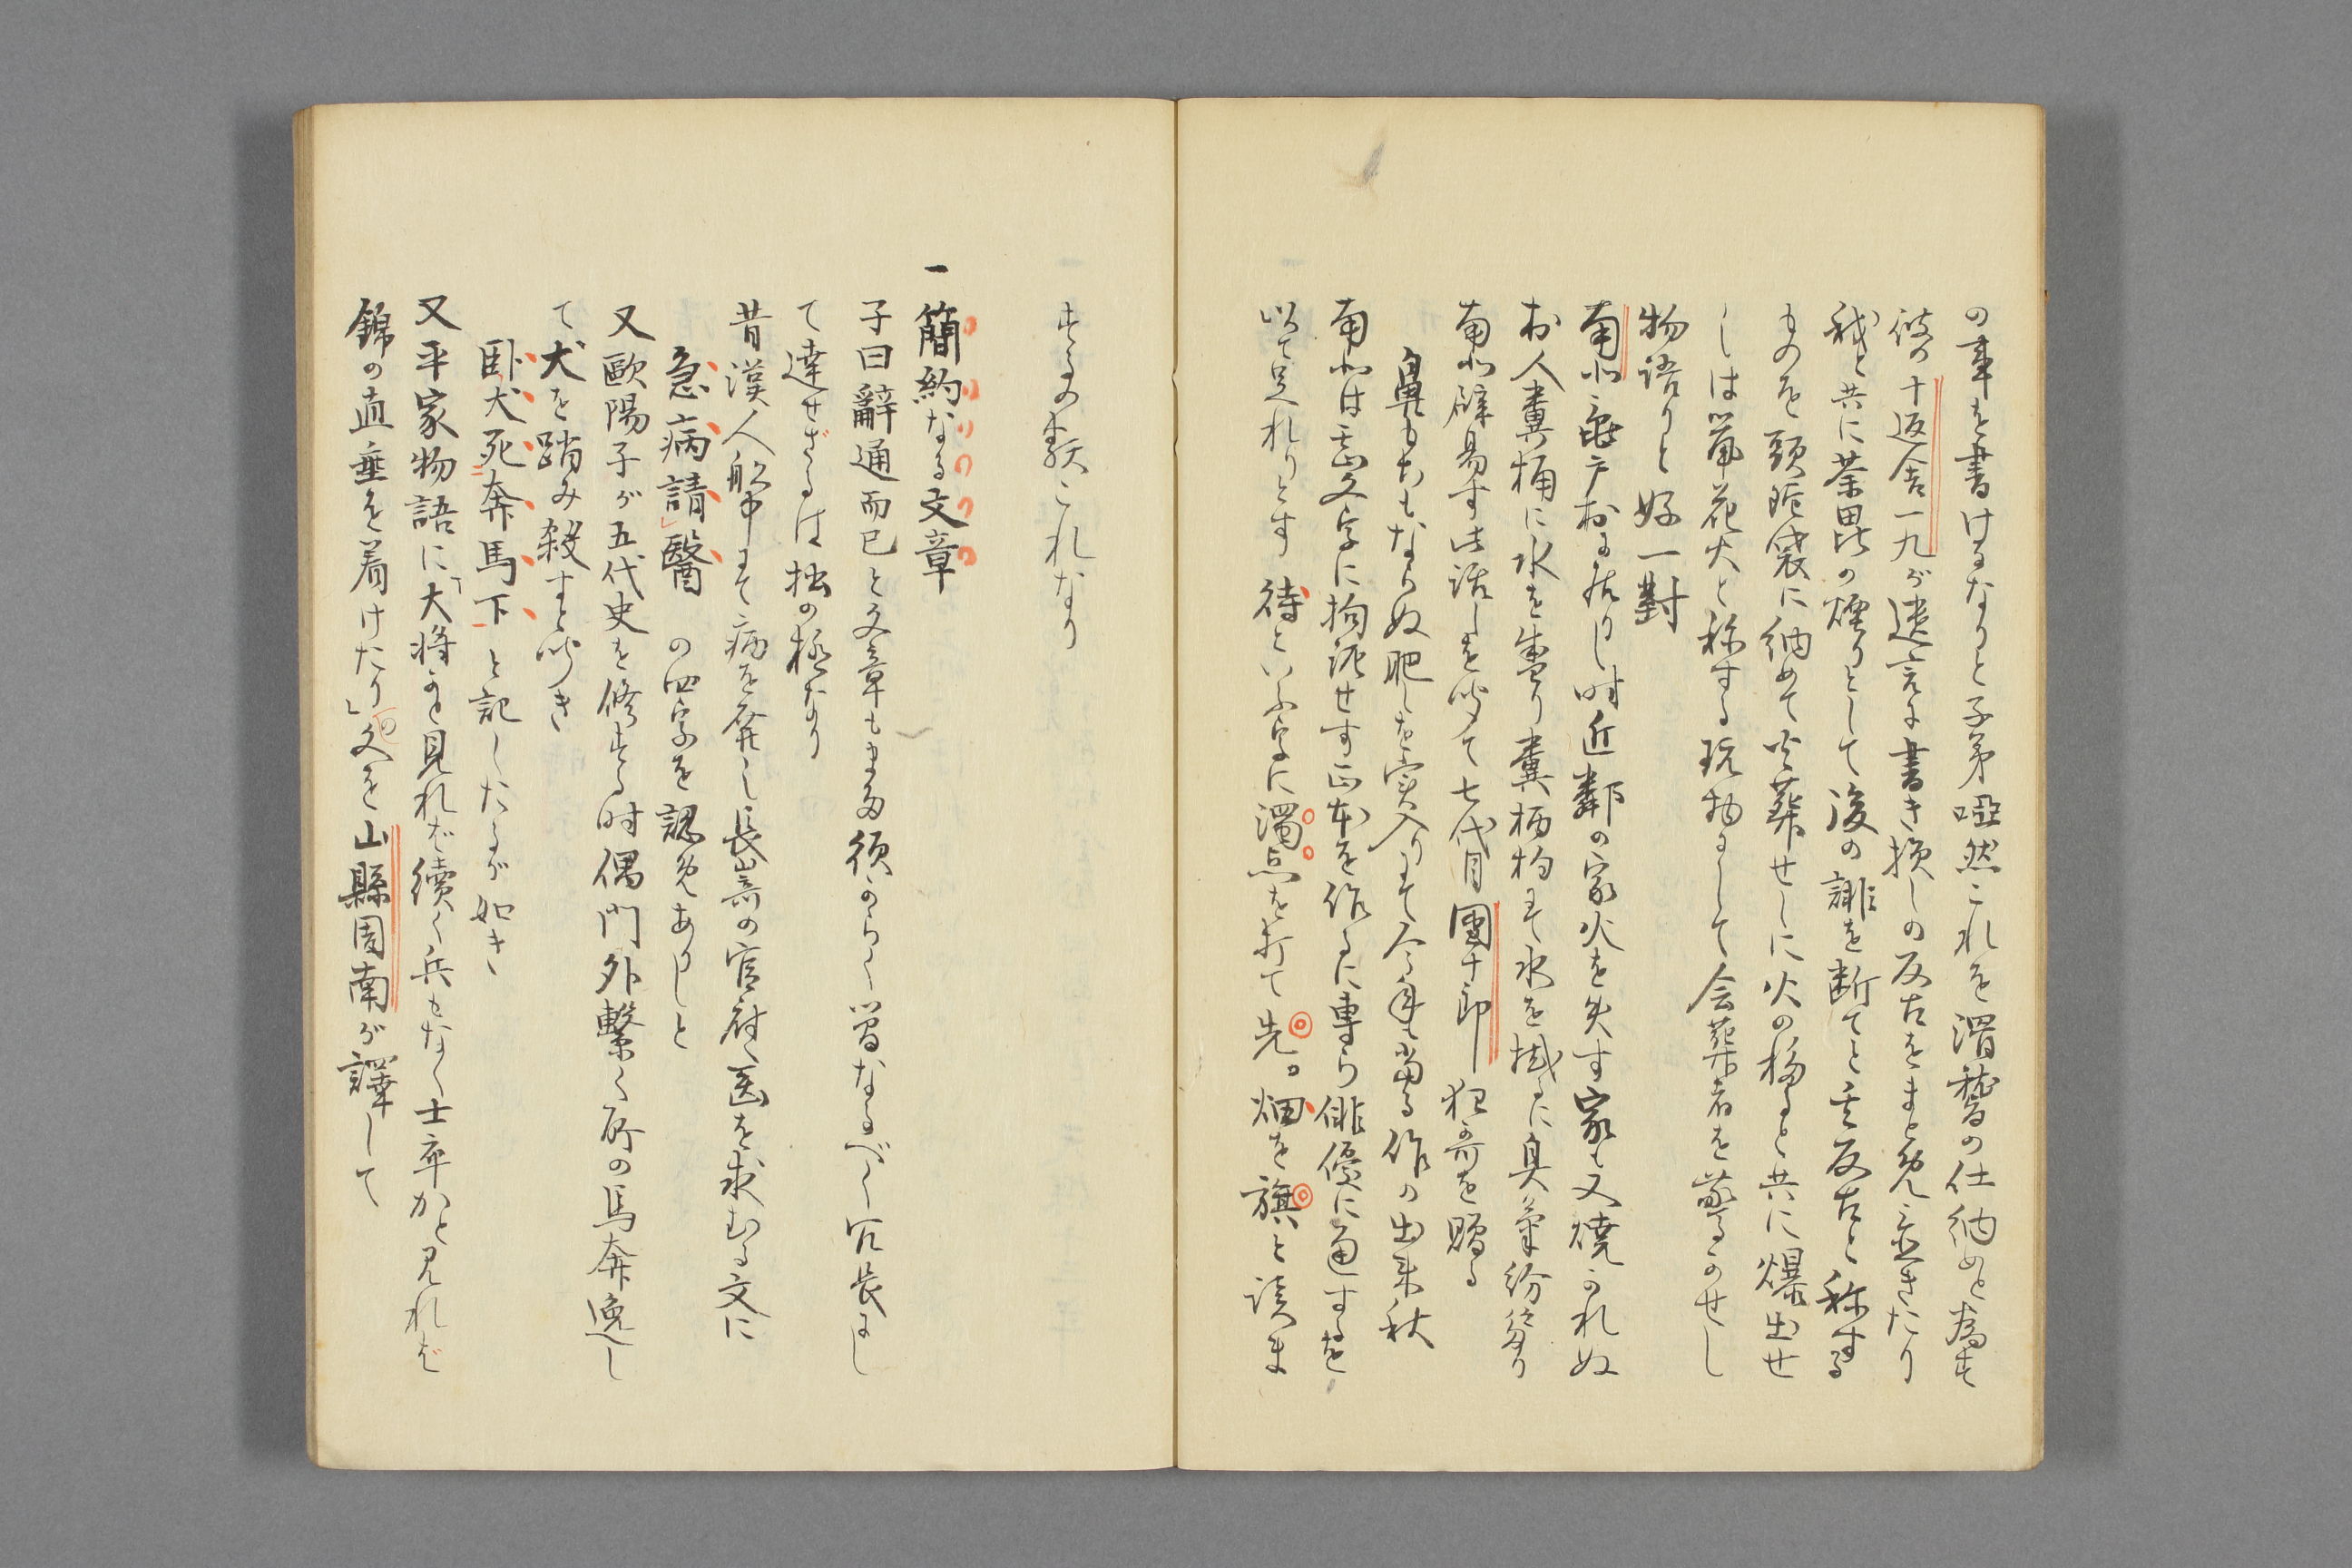 の事を書けるなりと子弟啞然これを滑稽の仕納めと為す
彼の十返舎一九が遺言に書き損しの反古をまとめ置きたり
我と共に荼毘の煙りとして後の誹を断てと其反古と称する
ものを頭陀袋に納めて火葬せしに火の移ると共に爆出せ
しは篭花火と称する玩物にして会葬者を驚かせし
物語りと好一對
南北亀戸村に居りし時近鄰の家火を失す家も又焼かれぬ
村人糞桶に水を盛り糞柄杓にて水を掛るに臭氣紛々たり
南北辟易す此話しを聞て七代目團十郎狂哥を贈る
鼻もちもならぬ肥しを実入りにて今年も當る作の出来秋
南北は其文字に拘泥せす正本を作るに専ら俳優に通するを
以て足れりとす待といふ字に濁点を打て先。畑を旗と読ま
するの類これなり
一 簡約なる文章
子曰辭通而已と文章もまた須からく簡なるべく冗長にし
て達せざるは拙の極なり
昔漢人船中にて病を発し長崎の官府へ医を求むる文に
急病請醫 の四字を認めありしと
又歐陽子が五代史を修する時偶門外繫く所の馬奔逸し
て犬を踏み殺すと聞き
臥犬死奔馬下 と記したるが如き
又平家物語に「大将かと見れば續く兵もなく士卒かと見れば
錦の直垂を着けたり」の文を山縣周南が譯して